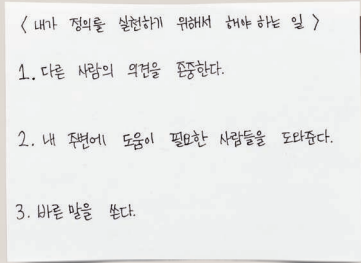 < 내가 정의를 실천하기 위해서 해야 하는 일 >
1. 다른 사람의 의견을 존중한다.
2. 내 주변에 도움이 필요한 사람들을 도와준다.
3. 바른 말을 쓴다.